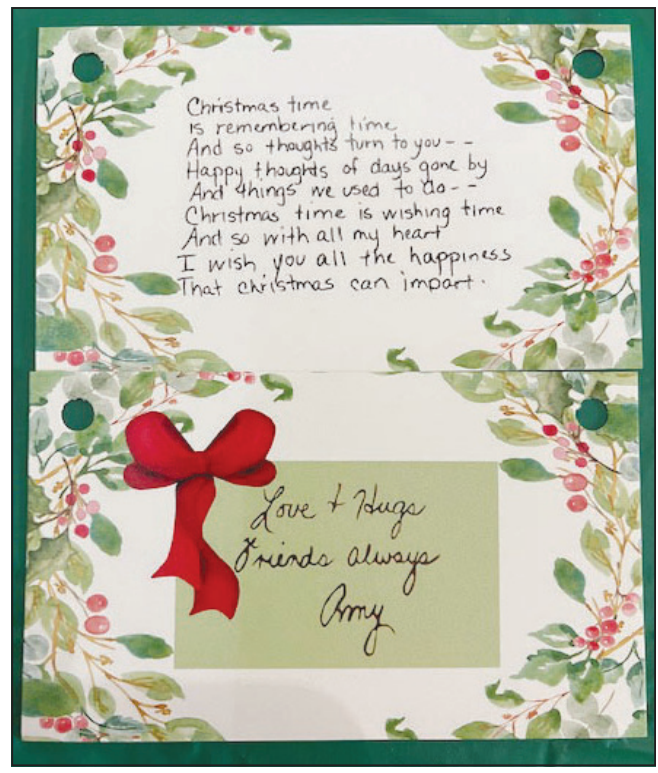 Christmas time
is remembering time
And so thoughts turn to you--
Happy thoughts of days gone by
And things we used to do--
Christmas time is wishing time
And so with all my heart
I wish you all the happiness
That christmas can impart.
Love + Hugs
Friends always
Amy